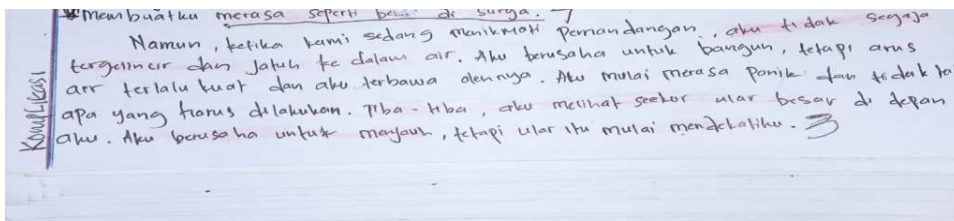 membuatku merasa seperti di surga.
Namun, ketika kami sedang menikmati pemandangan, aku tidak segaja
tergelincir dan jatuh ke dalam air. Aku berusaha untuk bangun, tetapi arus
air terlalu kuat dan aku terbawa olennya. Aku mulai merasa panik dan tidak
apa yang harus dilakukan. Tiba-tiba, aku melihat seekor ular besar di depan
aku. Aku berusaha untuk menjauh, tetapi ular itu mulai mendekatiku. 3
Komplikasi